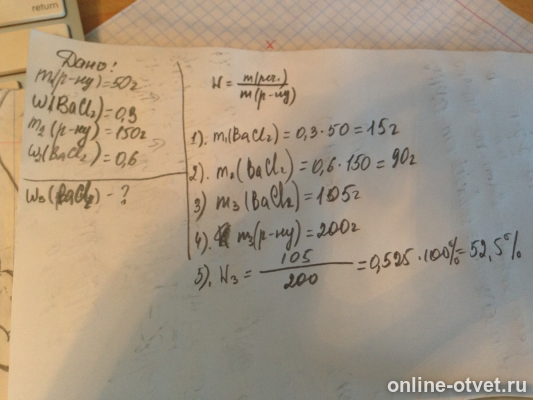 return
Дано:
m₁(р-ну)=50г
W₁(BaCl₂)=0,3
m₂(р-ну)=150г
W₂(BaCl₂)=0,6
W₃(BaCl₂) - ?
W = m(реч.) / m(р-ну)
1). m₁(BaCl₂)=0,3·50=15г
2). m₂(BaCl₂)=0,6·150=90г
3) m₃(BaCl₂)=105г
4). m₃(р-ну)=200г
5). W₃ = 105 / 200 =0,525·100%=52,5%
online-otvet.ru